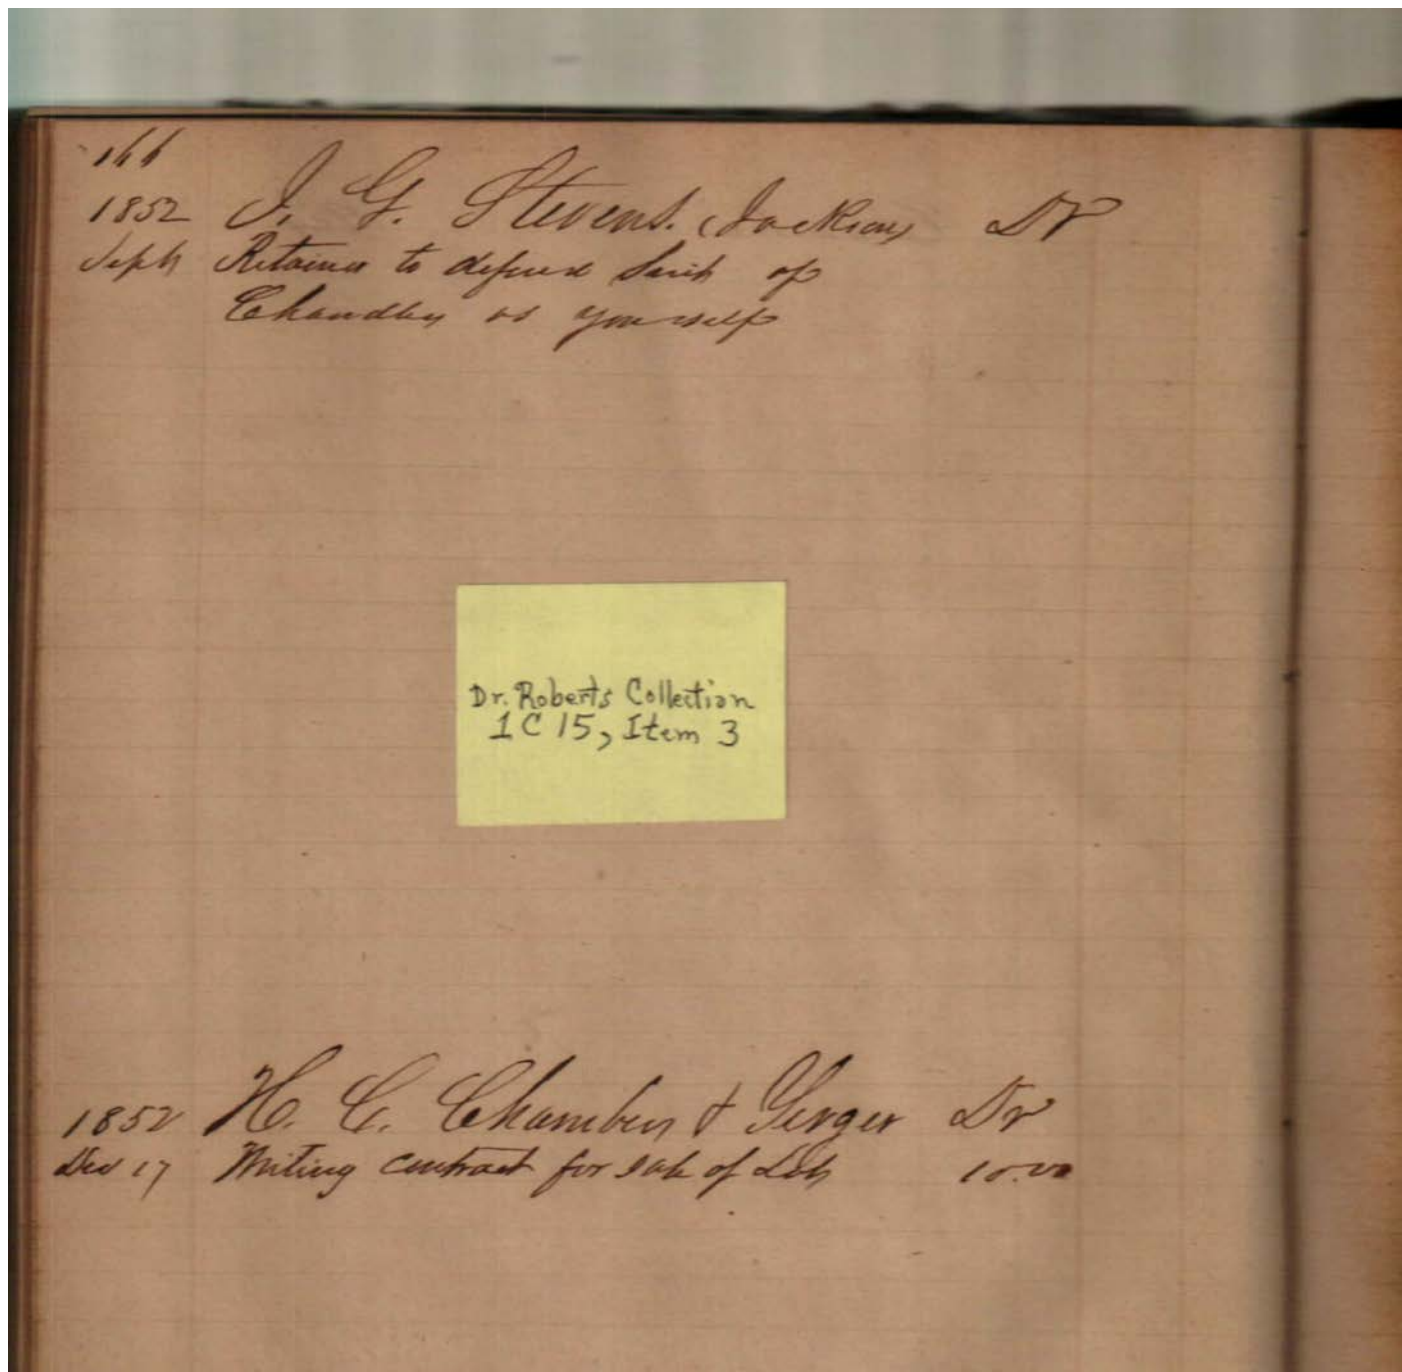 166
1852 J. G. Stevens. (Jackson) Dr
Sept Retainer to defend Suit of
Chandler vs yourself
Dr. Roberts Collection
1C15, Item 3
1852 H. C. Chambers & Yerger Dr
Dec 17 Writing contract for sale of Lots 10.00